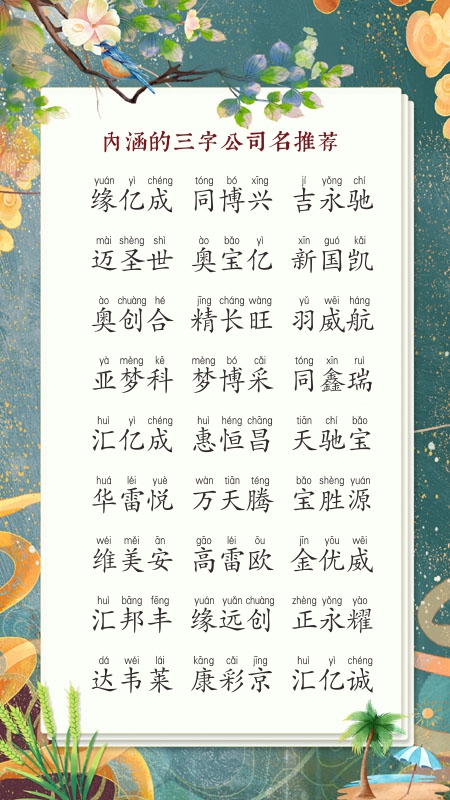 内涵的三字公司名推荐
yuán yì chéng tóng bó xīng jí yǒng chí
缘亿成 同博兴 吉永驰
mài shèng shì ào bǎo yì xīn guó kǎi
迈圣世 奥宝亿 新国凯
ào chuàng hé jīng cháng wàng yǔ wēi háng
奥创合 精长旺 羽威航
yà mèng kē mèng bó cǎi tóng xīn ruì
亚梦科 梦博采 同鑫瑞
huì yì chéng huì héng chāng tiān chí bǎo
汇亿成 惠恒昌 天驰宝
huá léi yuè wàn tiān téng bǎo shèng yuán
华雷悦 万天腾 宝胜源
wéi měi ān gāo léi ōu jīn yōu wēi
维美安 高雷欧 金优威
huì bāng fēng yuán yuǎn chuàng zhèng yǒng yào
汇邦丰 缘远创 正永耀
dá wéi lái kāng cǎi jīng huì yì chéng
达韦莱 康彩京 汇亿诚